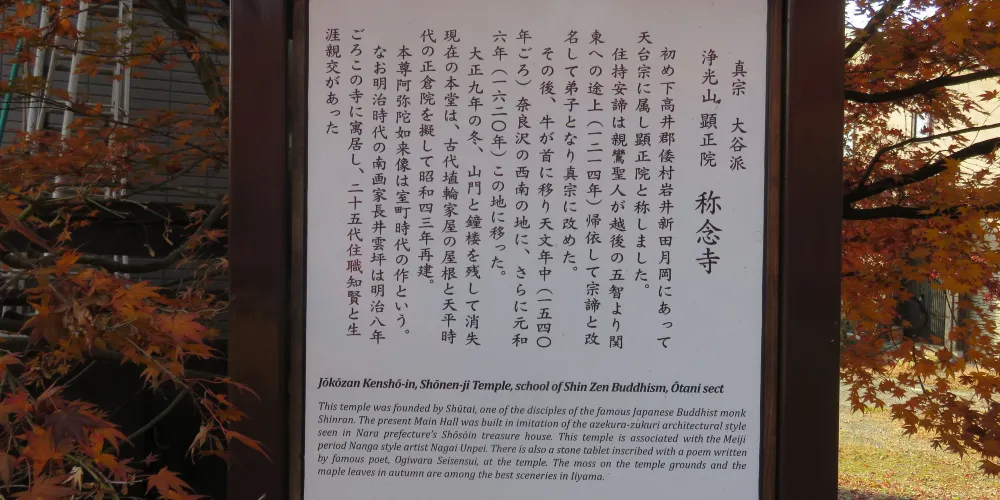 真宗 大谷派
浄光山 顕正院 称念寺
初め下高井郡倭村岩井新田月岡にあって
天台宗に属し顕正院と称しました。
住持安諦は親鸞聖人が越後の五智より関
東への途上（一二一四年）帰依して宗諦と改
名して弟子となり真宗に改めた。
その後、牛が首に移り天文年中（一五四〇
年ごろ）奈良沢の西南の地に、さらに元和
六年（一六二〇年）この地に移った。
大正九年の冬、山門と鐘楼を残して消失
現在の本堂は、古代埴輪家屋の屋根と天平時
代の正倉院を擬して昭和四三年再建。
本尊阿弥陀如来像は室町時代の作という。
なお明治時代の南画家長井雲坪は明治八年
ごろこの寺に寓居し、二十五代住職知賢と生
涯親交があった
Jōkōzan Kenshō-in, Shōnen-ji Temple, school of Shin Zen Buddhism, Ōtani sect
This temple was founded by Shūtai, one of the disciples of the famous Japanese Buddhist monk
Shinran. The present Main Hall was built in imitation of the azekura-zukuri architectural style
seen in Nara prefecture's Shōsōin treasure house. This temple is associated with the Meiji
period Nanga style artist Nagai Unpei. There is also a stone tablet inscribed with a poem written
by famous poet, Ogiwara Seisensui, at the temple. The moss on the temple grounds and the
maple leaves in autumn are among the best sceneries in Iiyama.